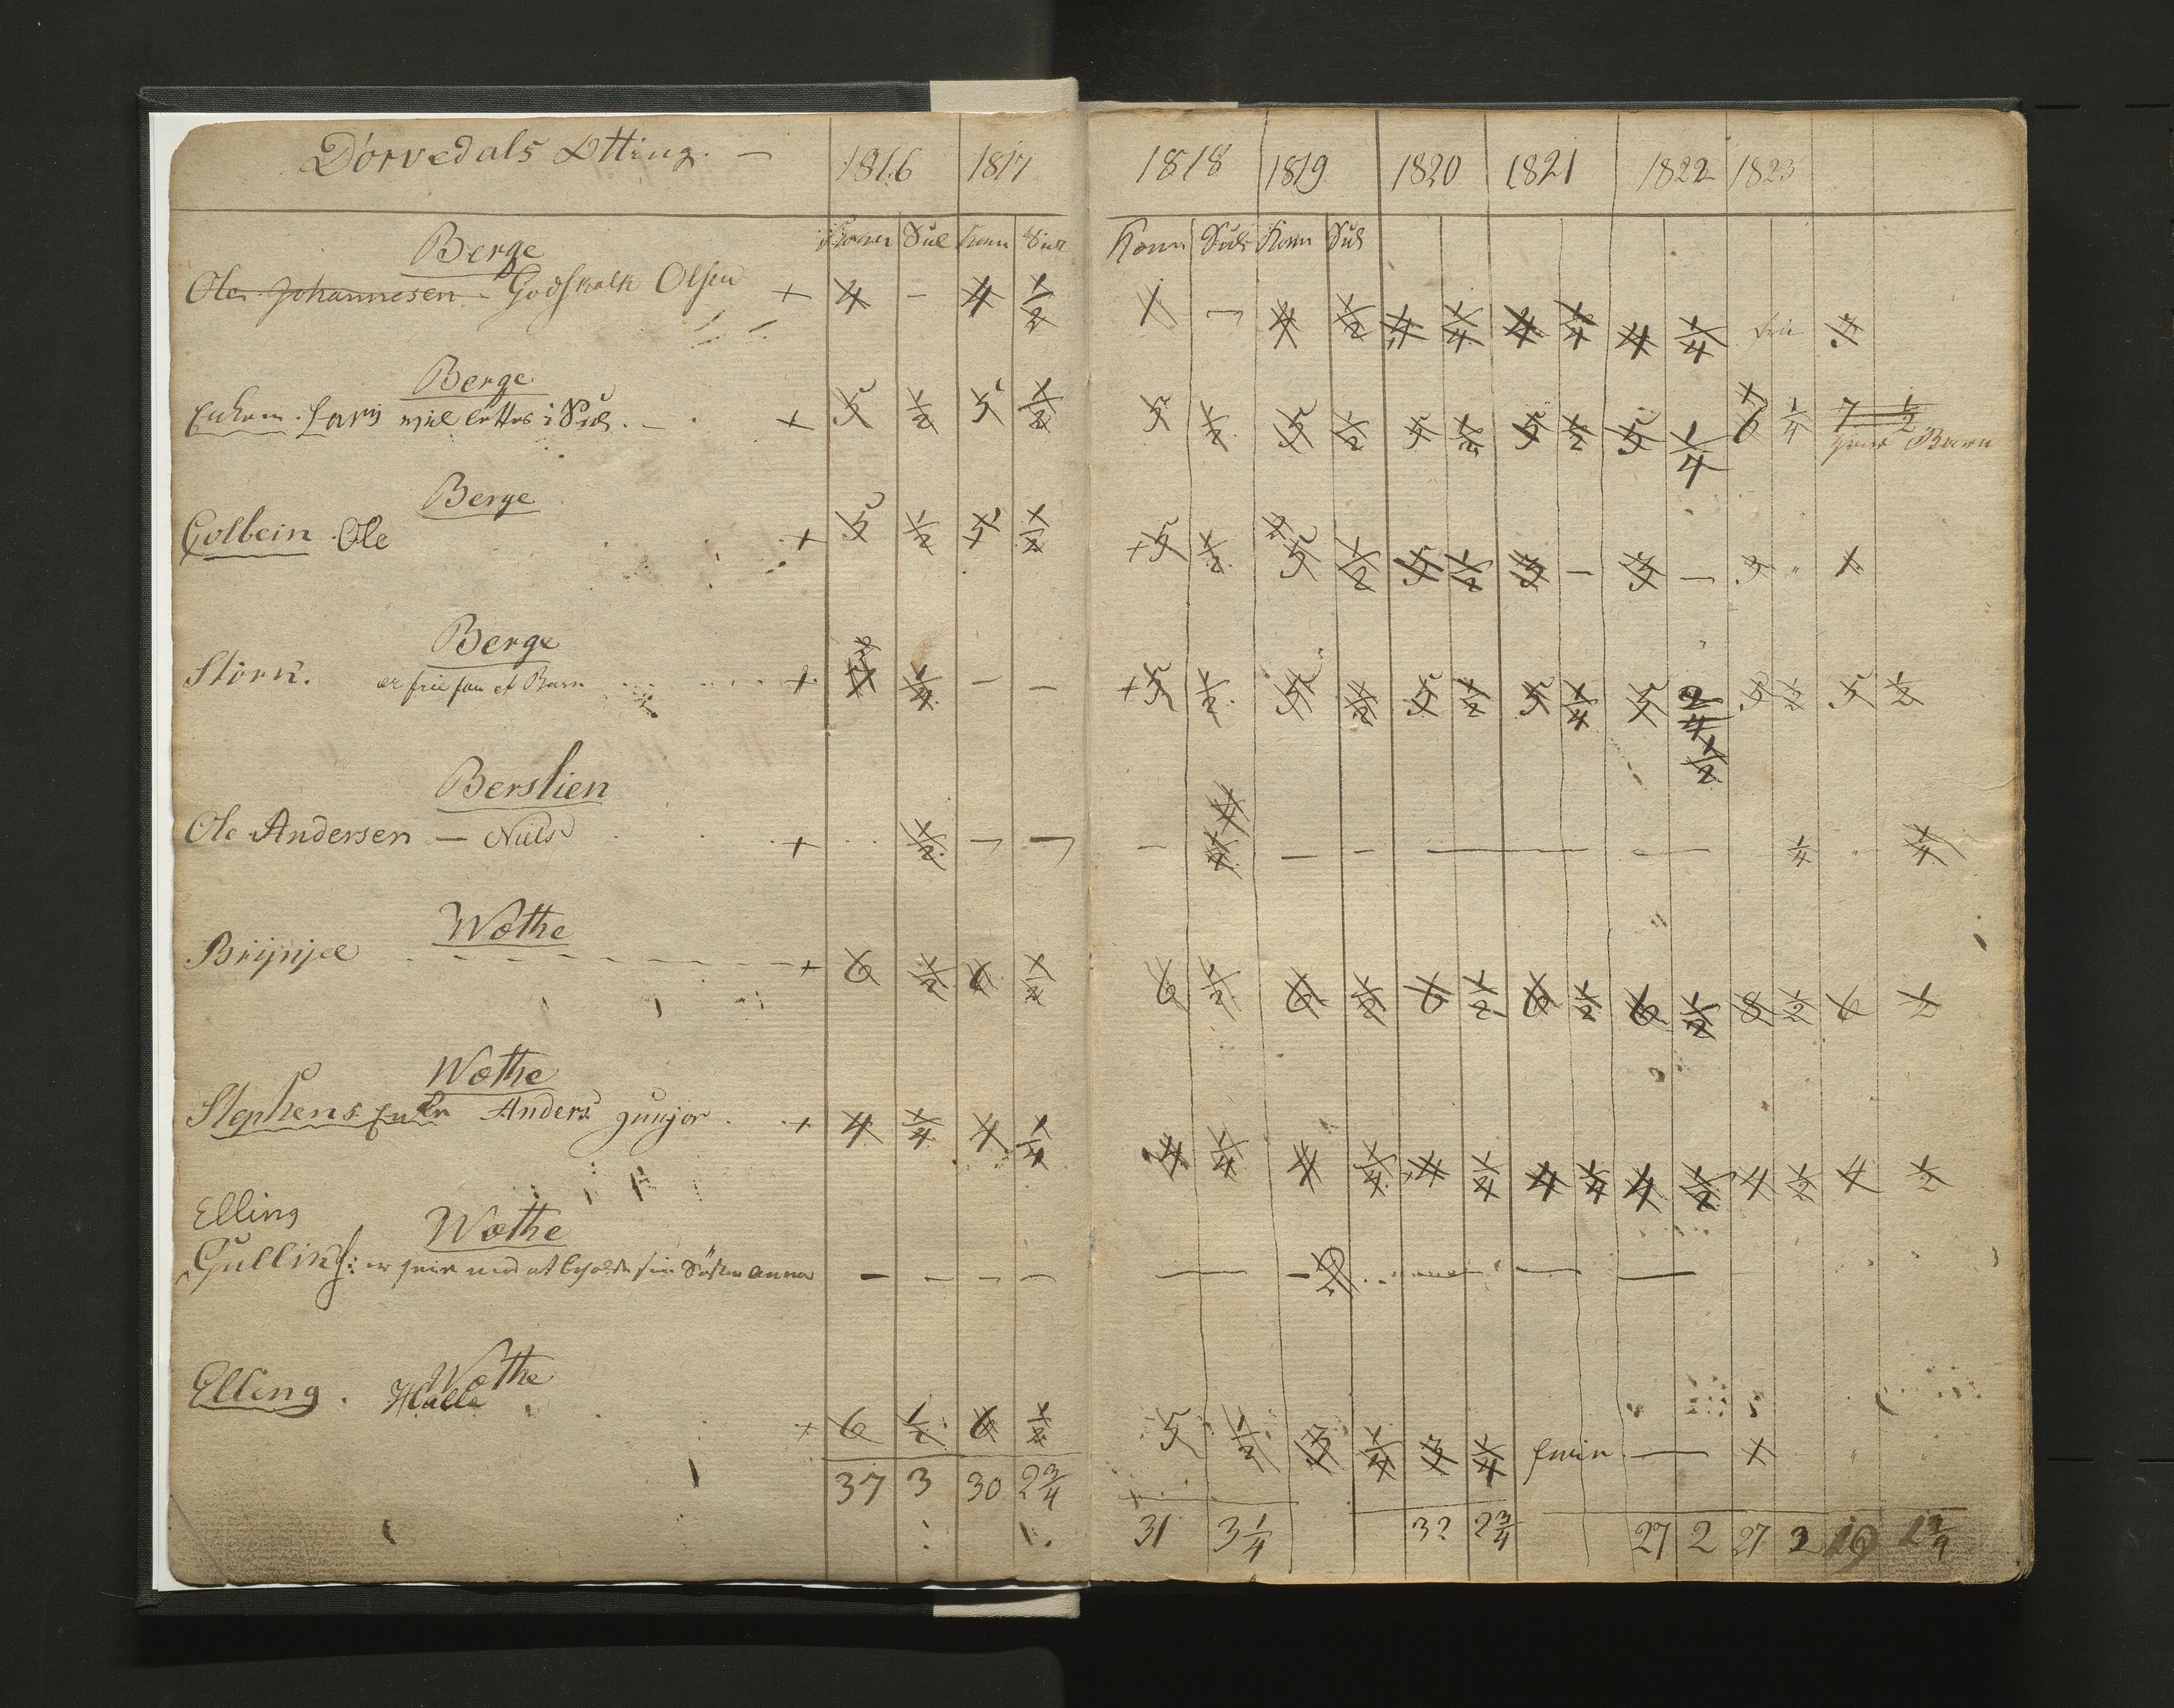 Dørvedals Otting. — 1816 1817 1818 1819 1820 1821 1822 1823
Korn Sul Korn Sul Korn Sul Korn Sul
Berge
Ole Johannesen - Godskalk Olsen + 4 — 4 1/2 1 — 4 1/2 4 1/4 4 1/4 4 1/4 frie 3
Berge
Enken Lars vil lettes i Sul. — + 5 1/2 5 1/2 5 1/2 5 1/2 5 1/2 5 1/2 5 1/4 6 1/4 7 1/2
Barn
Berge
Colbein Ole + 5 1/2 5 1/2 +5 1/2 5 1/2 5 1/2 3 — 3 — 3 " 1
Berge
Störk. er frie for et Barn + 4 1/4 — — +5 1/2 5 1/2 5 1/2 5 1/4 5 2/4 5 1/2 5 1/2
1/2
Berslien
Ole Andersen — Nuls + 1/2 — — — — — — — 1/4 " 1/4
Wøthe
Brijnjel + 6 1/2 6 1/2 6 1/2 6 1/2 6 1/2 6 1/2 6 1/2 8 1/2 6 1/2
Wøthe
Stephens Enke Anders gunjor + 4 1/4 4 1/4 4 1/4 4 1/4 4 1/4 4 1/4 4 1/2 4 1/2 4 1/2
Elling
Wøthe
Gullik: er frie med at beholde sin Søster Anna — — — — — — — — —
Wøthe
Elling. Halle + 6 1/2 6 1/2 5 1/2 3 1/4 3 1/4 — +
37 3 30 2 3/4 31 3 1/4 32 2 3/4 27 2 27 2 19 1 3/4